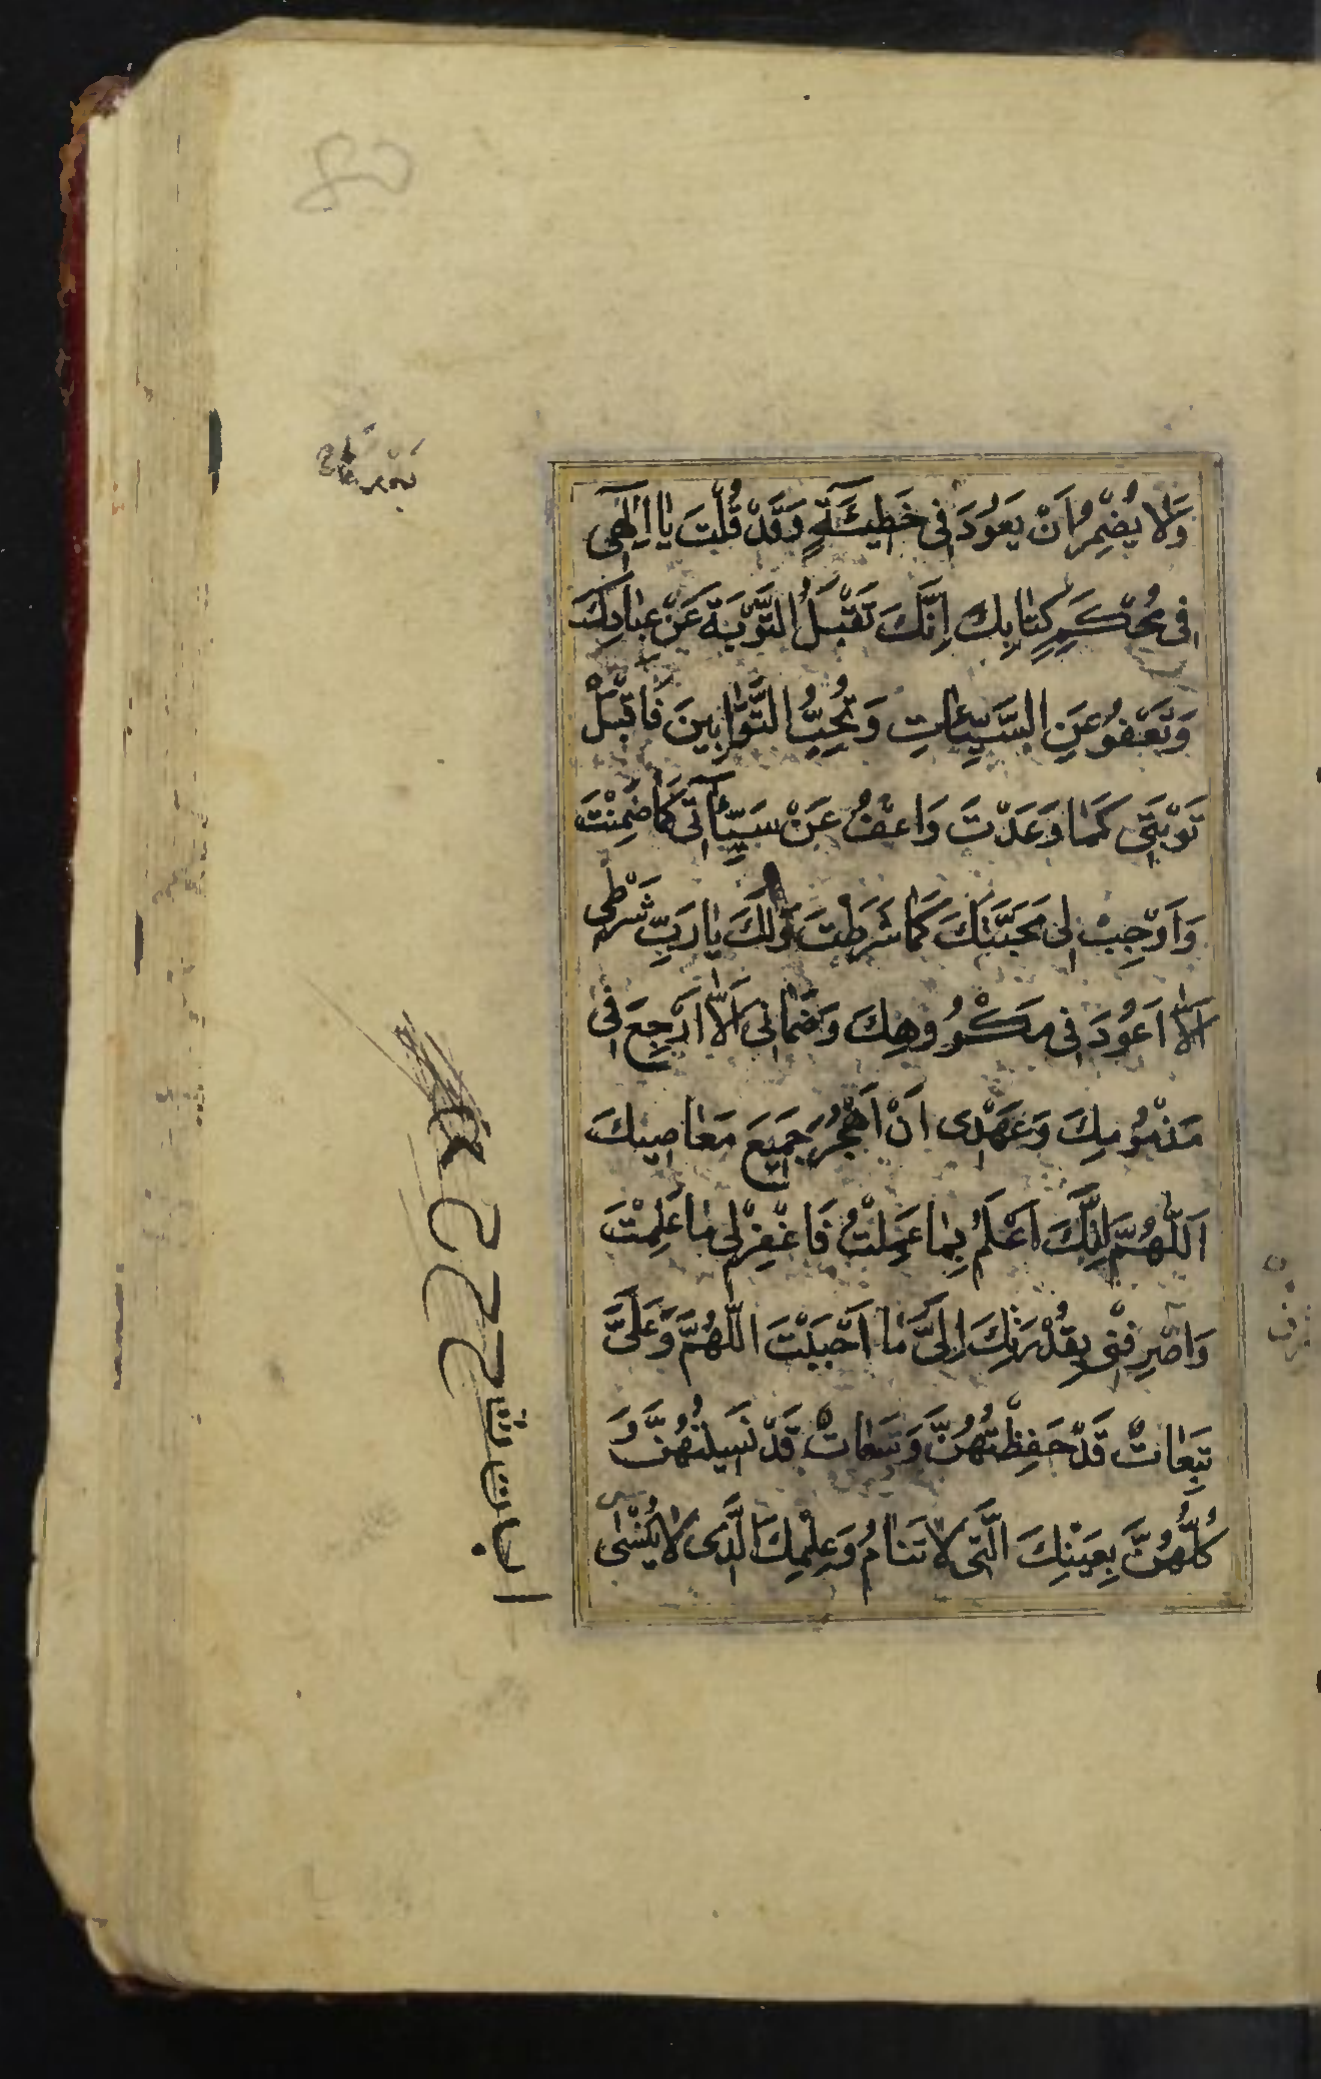 وَلَا يُضْمِرُ اَنْ يَعُودَ فِى خَطِيئَةٍ وَقَدْ قُلْتَ يَا اِلٰهِى
فِى مُحْكَمِ كِتَابِكَ اِنَّكَ تَقْبَلُ التَّوْبَةَ عَنْ عِبَادِكَ
وَتَعْفُو عَنِ السَّيِّئَاتِ وَتُحِبُّ التَّوَّابِينَ فَاقْبَلْ
تَوْبَتِى كَمَا وَعَدْتَ وَاعْفُ عَنْ سَيِّئَاتِى كَمَا ضَمِنْتَ
وَاَوْجِبْ لِى مَحَبَّتَكَ كَمَا شَرَطْتَ وَلَكَ يَا رَبِّ شَرْطِى
اَلَّا اَعُودَ فِى مَكْرُوهِكَ وَضَمَانِى اَلَّا اَرْجِعَ فِى
مَذْمُومِكَ وَعَهْدِى اَنْ اَهْجُرَ جَمِيعَ مَعَاصِيكَ
اَللّٰهُمَّ اِنَّكَ اَعْلَمُ بِمَا عَمِلْتُ فَاغْفِرْ لِى مَا عَلِمْتَ
وَاصْرِفْنِى بِقُدْرَتِكَ اِلَى مَا اَحْبَبْتَ اللّٰهُمَّ وَعَلَىَّ
تَبِعَاتٌ قَدْ حَفِظْتُهُنَّ وَتَبِعَاتٌ قَدْ نَسِيتُهُنَّ وَ
كُلُّهُنَّ بِعَيْنِكَ الَّتِى لَا تَنَامُ وَعِلْمِكَ الَّذِى لَا يَنْسٰى
ا ب ت ث ج ح خ